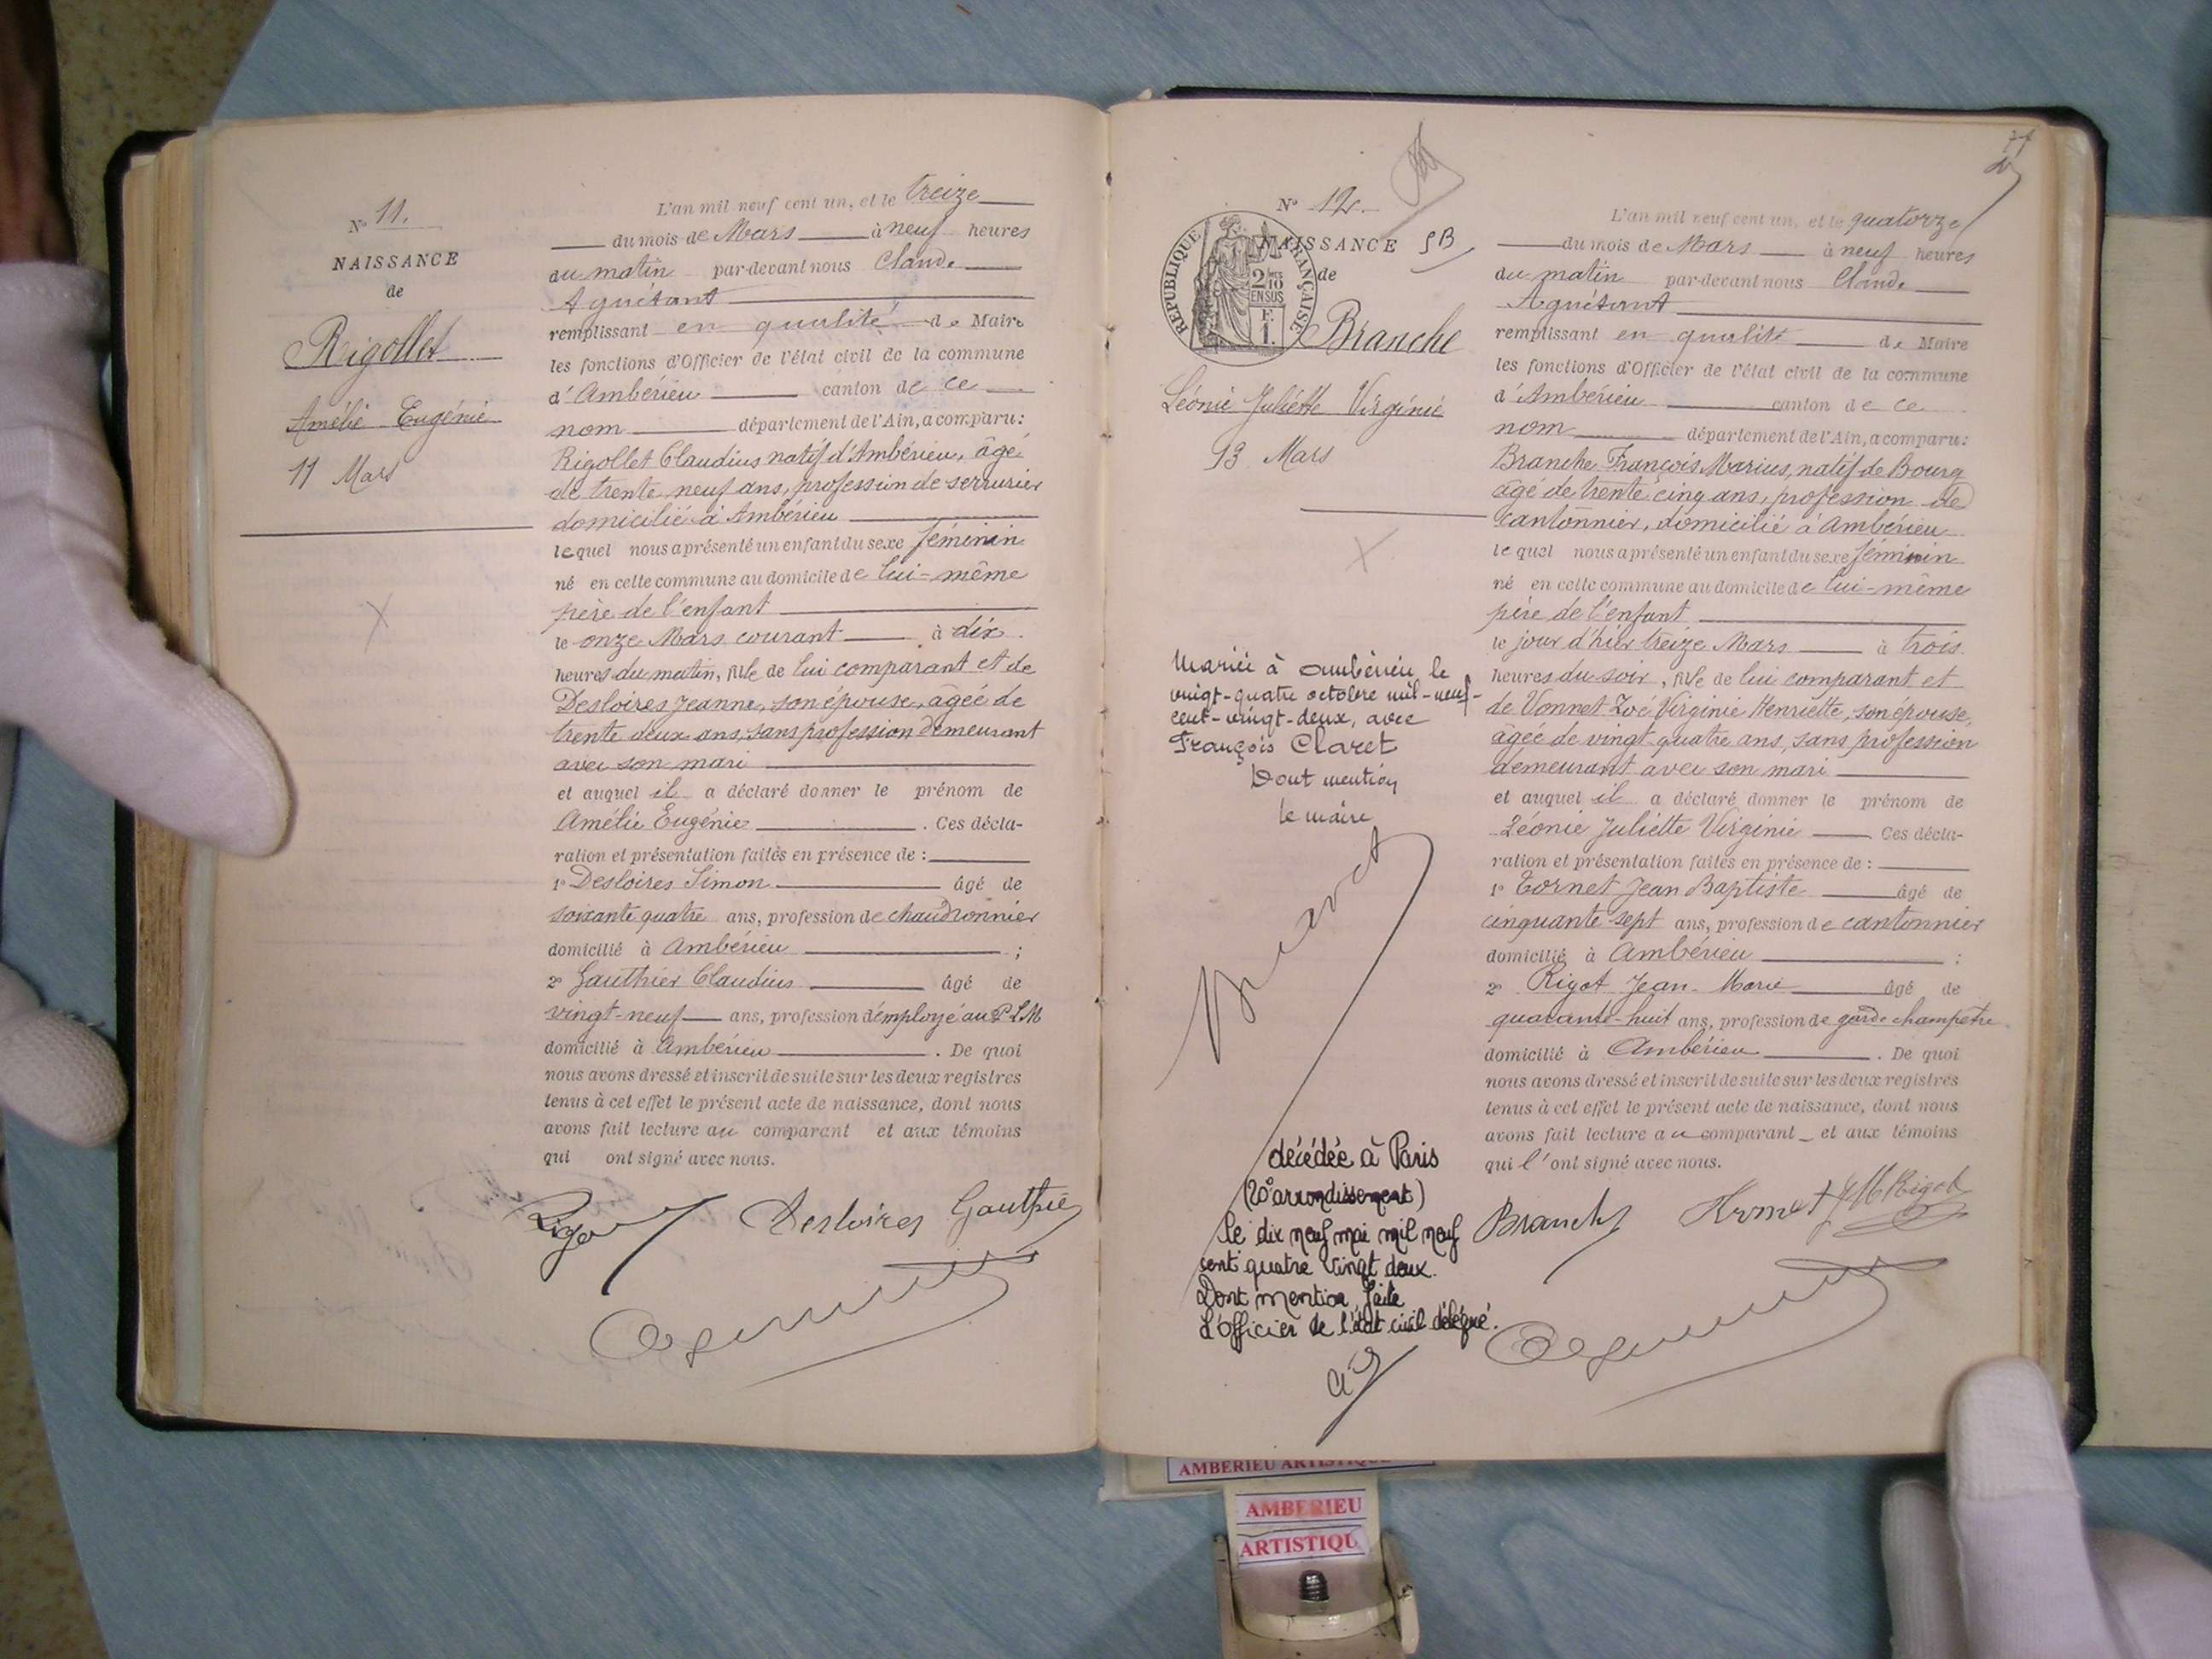 N° 11.
NAISSANCE
de
Rigollet
Amélie Eugénie
11 Mars
L'an mil neuf cent un, et le treize
du mois de Mars à neuf heures
du matin par-devant nous Claude
Aguétant
remplissant en qualité de Maire
les fonctions d'Officier de l'état civil de la commune
d'Ambérieu canton de ce
nom département de l'Ain, a comparu:
Rigollet Claudius natif d'Ambérieu, âgé
de trente neuf ans, profession de serrurier
domicilié à Ambérieu
lequel nous a présenté un enfant du sexe féminin
né en cette commune au domicile de lui-même
père de l'enfant
le onze Mars courant à dix
heures du matin, fille de lui comparant et de
Desloires Jeanne, son épouse, agée de
trente deux ans, sans profession demeurant
avec son mari
et auquel il a déclaré donner le prénom de
Amélie Eugénie . Ces décla-
ration et présentation faites en présence de :
1° Desloires Simon âgé de
soixante quatre ans, profession de chaudronnier
domicilié à Ambérieu ;
2° Gauthier Claudius âgé de
vingt-neuf ans, profession d'employé au P.L.M
domicilié à Ambérieu . De quoi
nous avons dressé et inscrit de suite sur les deux registres
tenus à cet effet le présent acte de naissance, dont nous
avons fait lecture au comparant et aux témoins
qui ont signé avec nous.
Desloires Gauthier
N° 12.
NAISSANCE SB
de
RÉPUBLIQUE FRANÇAISE
2/10 EN SUS
F. 1.
Branche
Léonie Juliette Virginie
13 Mars
Mariée à Ambérieu le
vingt-quatre octobre mil-neuf-
cent-vingt-deux, avec
François Claret
Dont mention
le maire
décédée à Paris
(20° arrondissement)
le dix neuf mai mil neuf
cent quatre vingt deux.
Dont mention faite
L'Officier de l'état civil délégué.
L'an mil neuf cent un, et le quatorze
du mois de Mars à neuf heures
du matin par-devant nous Claude
Aguétant
remplissant en qualité de Maire
les fonctions d'Officier de l'état civil de la commune
d'Ambérieu canton de ce
nom département de l'Ain, a comparu:
Branche François Marius, natif de Bourg
agé de trente cinq ans, profession de
cantonnier, domicilié à Ambérieu
lequel nous a présenté un enfant du sexe féminin
né en cette commune au domicile de lui-même
père de l'enfant
le jour d'hier treize Mars à trois
heures du soir, fille de lui comparant et
de Vonnet Zoé Virginie Henriette, son épouse,
agée de vingt quatre ans, sans profession
demeurant avec son mari
et auquel il a déclaré donner le prénom de
Léonie Juliette Virginie Ces décla-
ration et présentation faites en présence de :
1° Cornet Jean Baptiste âgé de
cinquante sept ans, profession de cantonnier
domicilié à Ambérieu ;
2° Rigot Jean-Marie âgé de
quarante-huit ans, profession de garde champêtre
domicilié à Ambérieu . De quoi
nous avons dressé et inscrit de suite sur les deux registres
tenus à cet effet le présent acte de naissance, dont nous
avons fait lecture au comparant et aux témoins
qui l'ont signé avec nous.
Branche JM Rigot
AMBERIEU ARTISTIQUE
AMBERIEU
ARTISTIQU